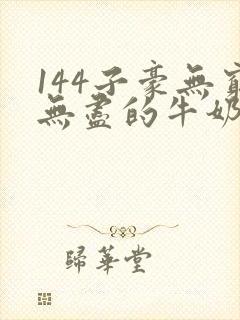 144子豪無窮
無盡的牛奶
歸華堂